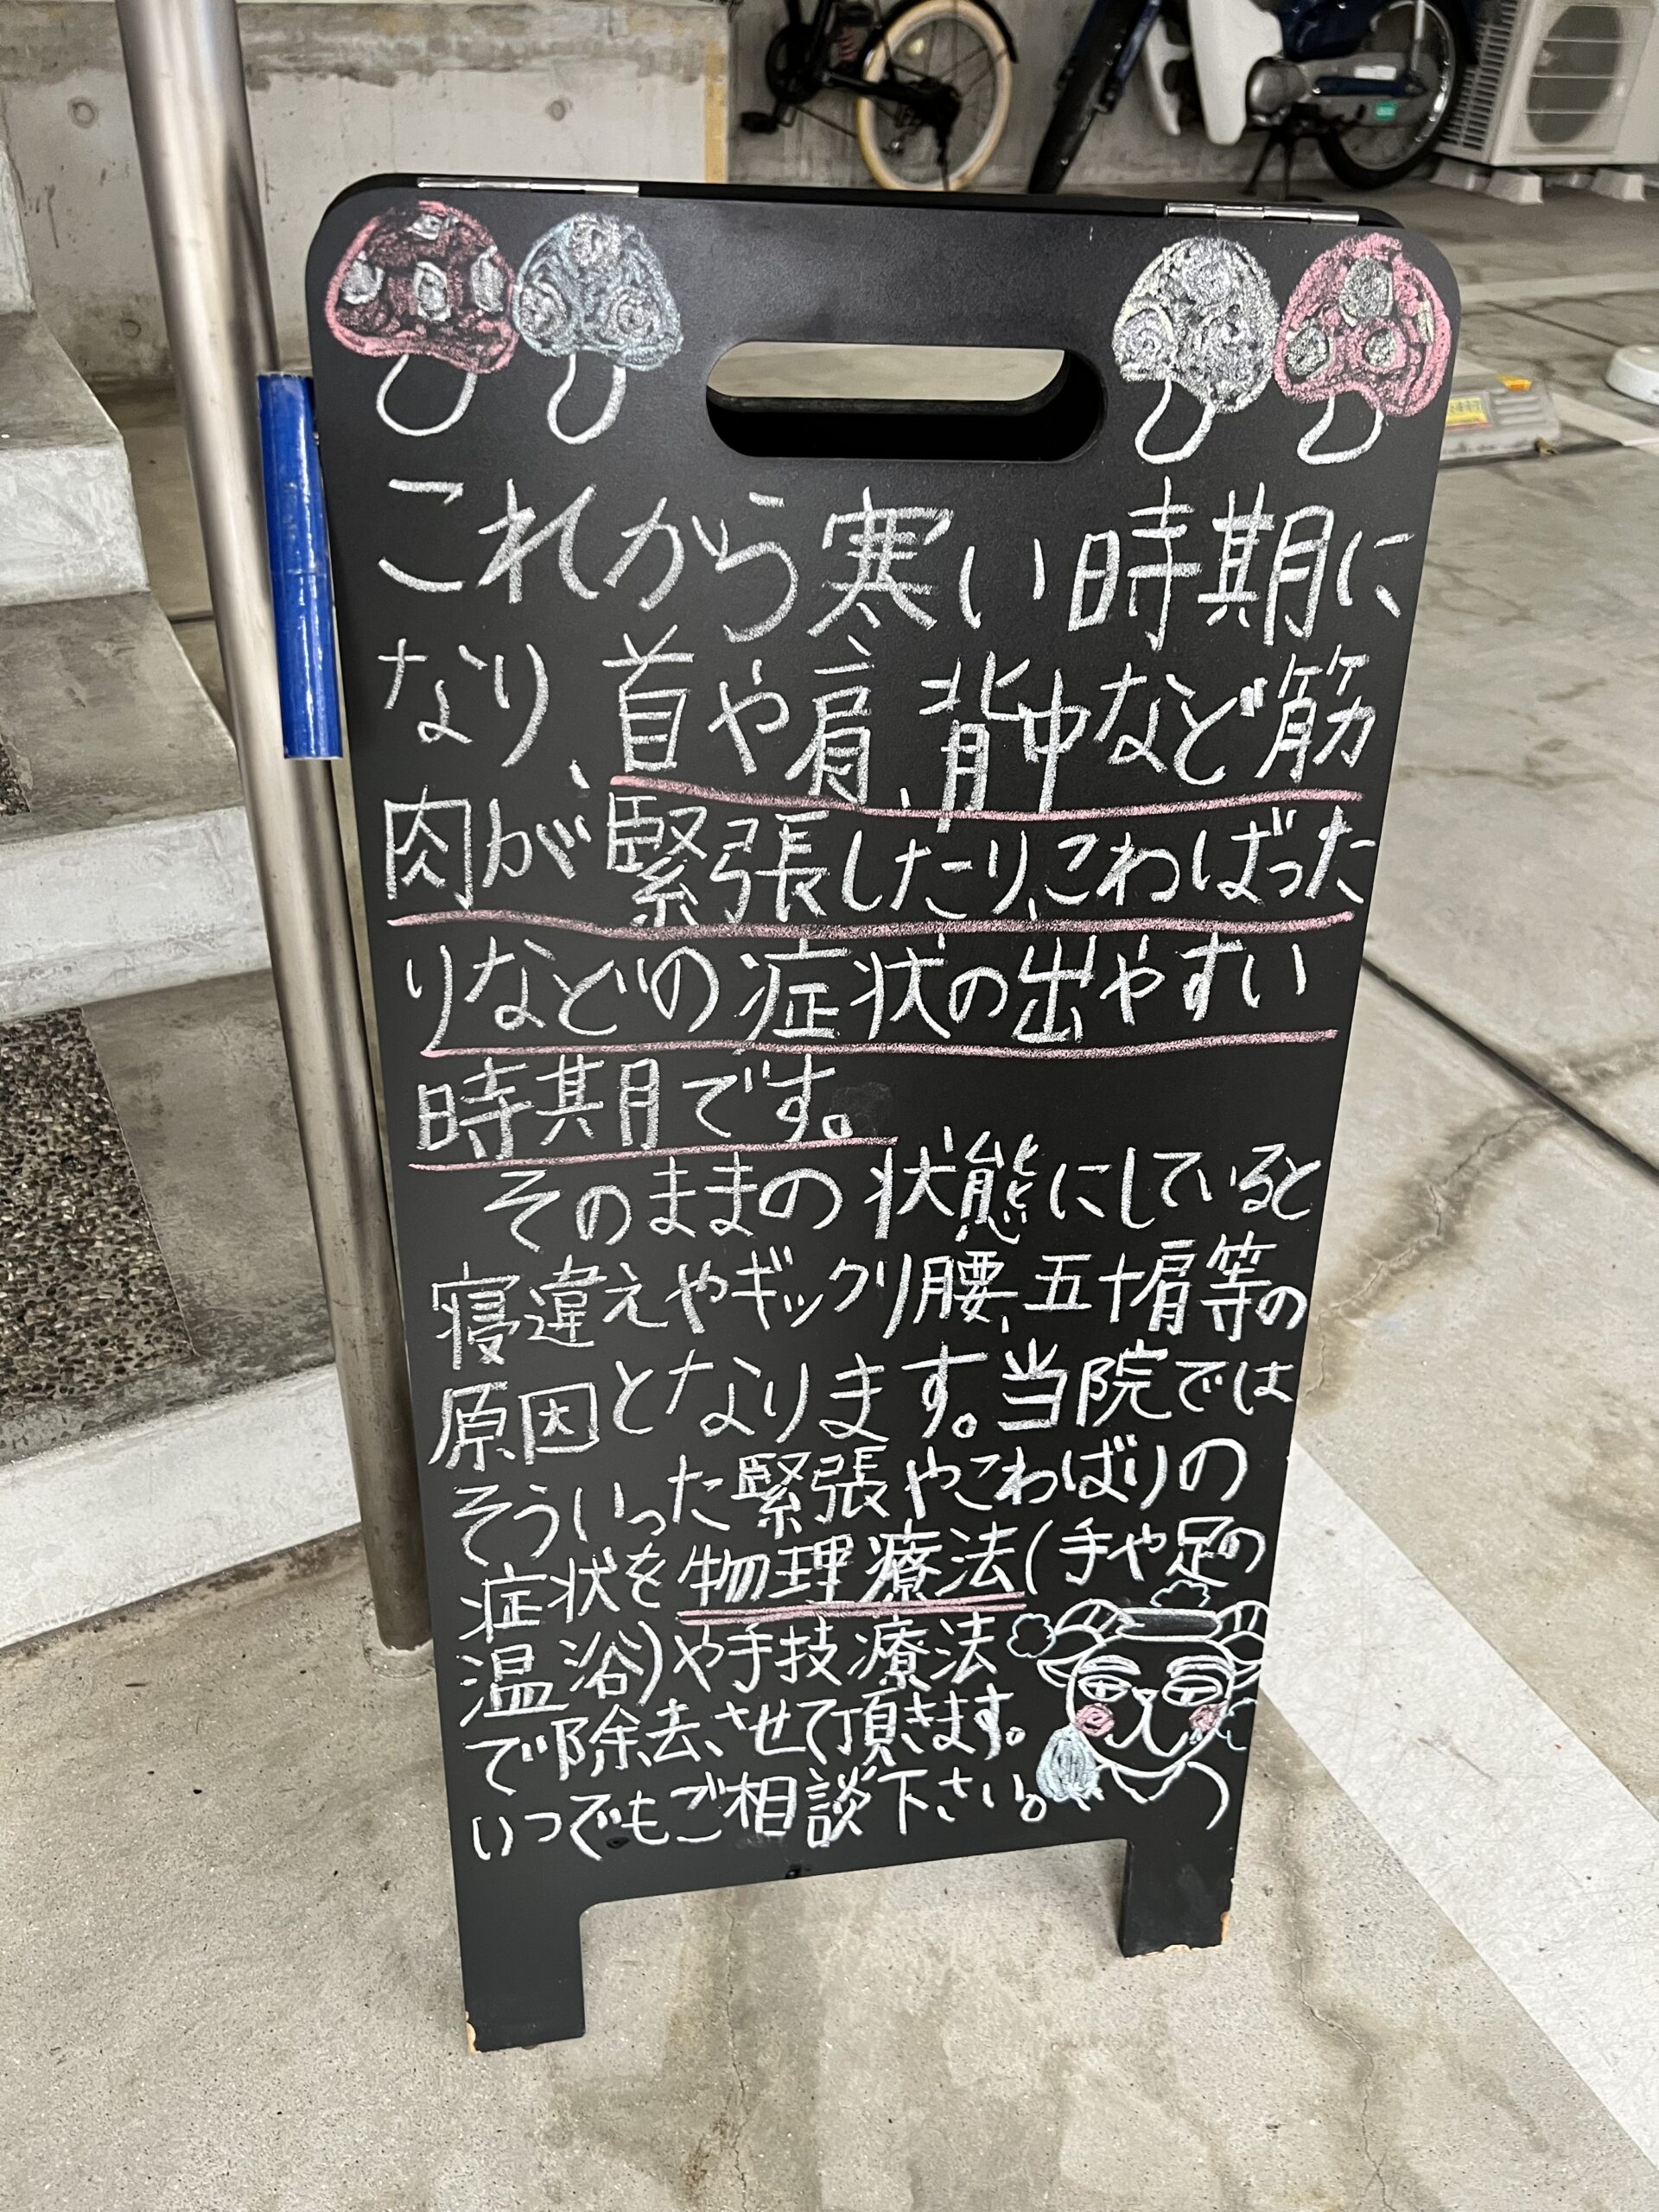 これから寒い時期に
なり、首や肩、背中など筋
肉が、緊張したり、こわばった
りなどの症状の出やすい
時期です。
そのままの状態にしていると
寝違えやギックリ腰、五十肩等の
原因となります。当院では
そういった緊張やこわばりの
症状を物理療法(手や足の
温浴)や手技療法
で除去させて頂きます。
いつでもご相談下さい。